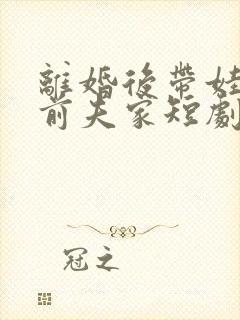 離婚後帶娃
前夫家短劇
冠之